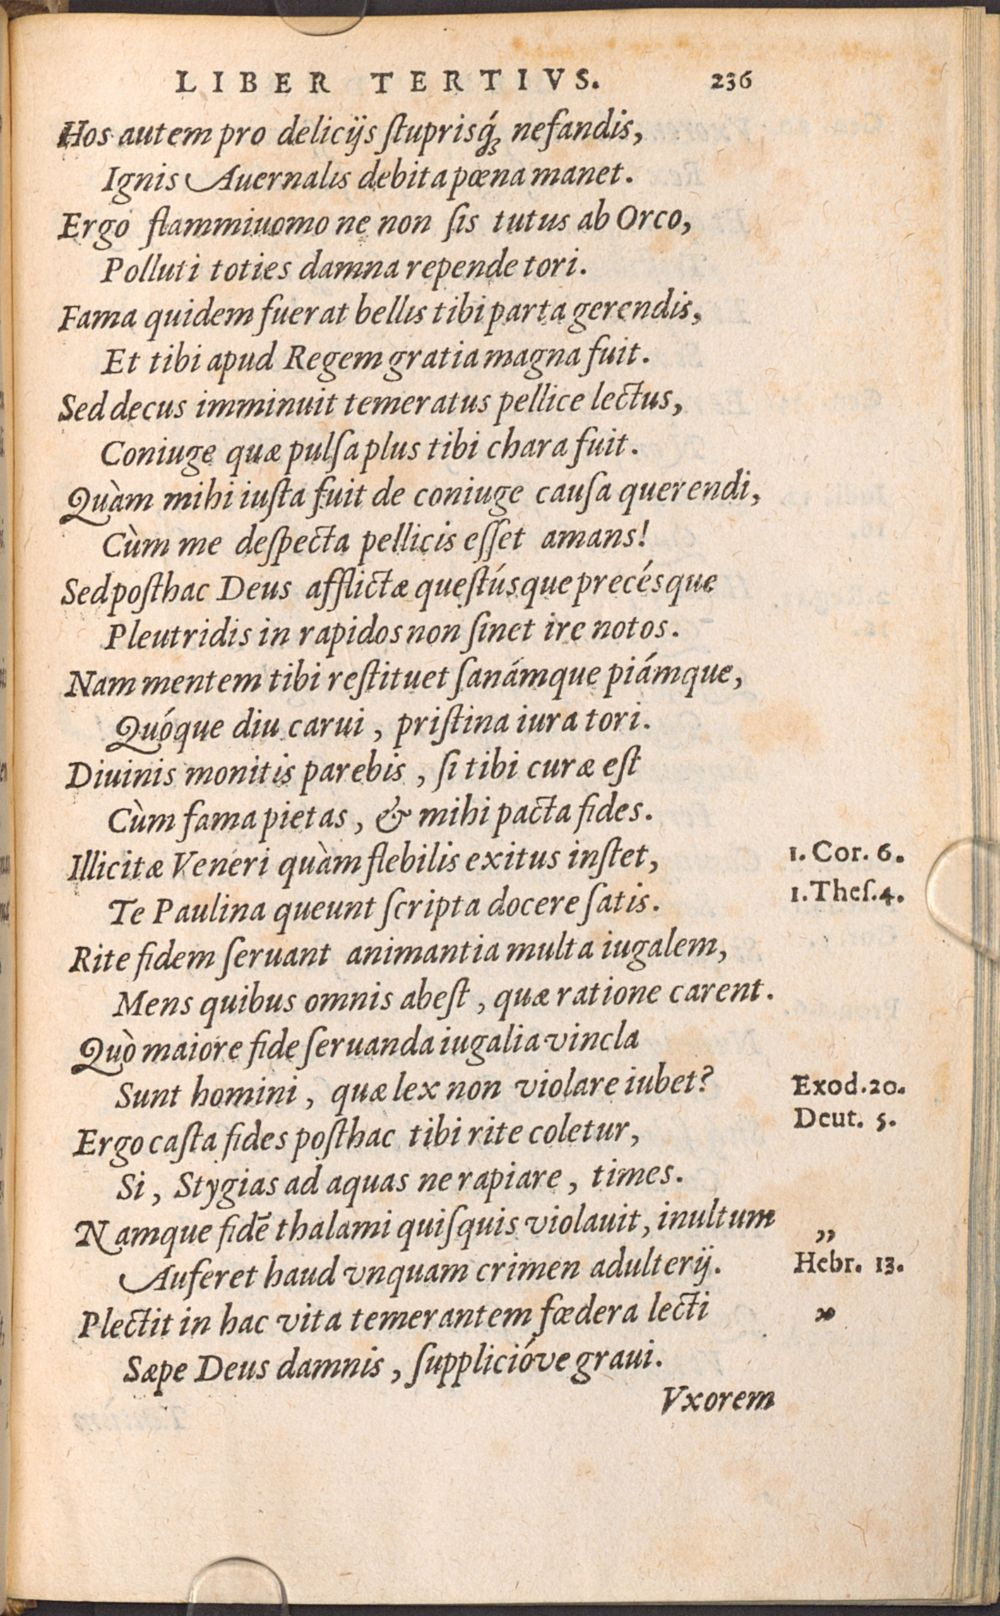 LIBER TERTIVS. 236
Hos autem pro delicijs ſtuprisq́; nefandis,
Ignis Auernalis debita pœna manet.
Ergo flammiuomo ne non ſis tutus ab Orco,
Polluti toties damna repende tori.
Fama quidem fuerat bellis tibi parta gerendis,
Et tibi apud Regem gratia magna fuit.
Sed decus imminuit temeratus pellice lectus,
Coniuge quæ pulſa plus tibi chara fuit.
Quàm mihi iuſta fuit de coniuge cauſa querendi,
Cùm me deſpecta pellicis eſſet amans!
Sed poſthac Deus afflictæ queſtúsque precésque
Pleutridis in rapidos non ſinet ire notos.
Nam mentem tibi reſtituet ſanámque piámque,
Quóque diu carui, priſtina iura tori.
Diuinis monitis parebis, ſi tibi curæ eſt
Cùm fama pietas, & mihi pacta fides.
Illicitæ Veneri quàm flebilis exitus inſtet, 1. Cor. 6.
Te Paulina queunt ſcripta docere ſatis. 1. Theſ. 4.
Rite fidem ſeruant animantia multa iugalem,
Mens quibus omnis abeſt, quæ ratione carent.
Quò maiore fide ſeruanda iugalia vincla
Sunt homini, quæ lex non violare iubet? Exod. 20.
Deut. 5.
Ergo caſta fides poſthac tibi rite coletur,
Si, Stygias ad aquas ne rapiare, times.
Namque fidẽ thalami quiſquis violauit, inultum „
Auferet haud vnquam crimen adulterij. Hebr. 13.
Plectit in hac vita temerantem fœdera lecti „
Sæpe Deus damnis, ſupplicióve graui.
Vxorem